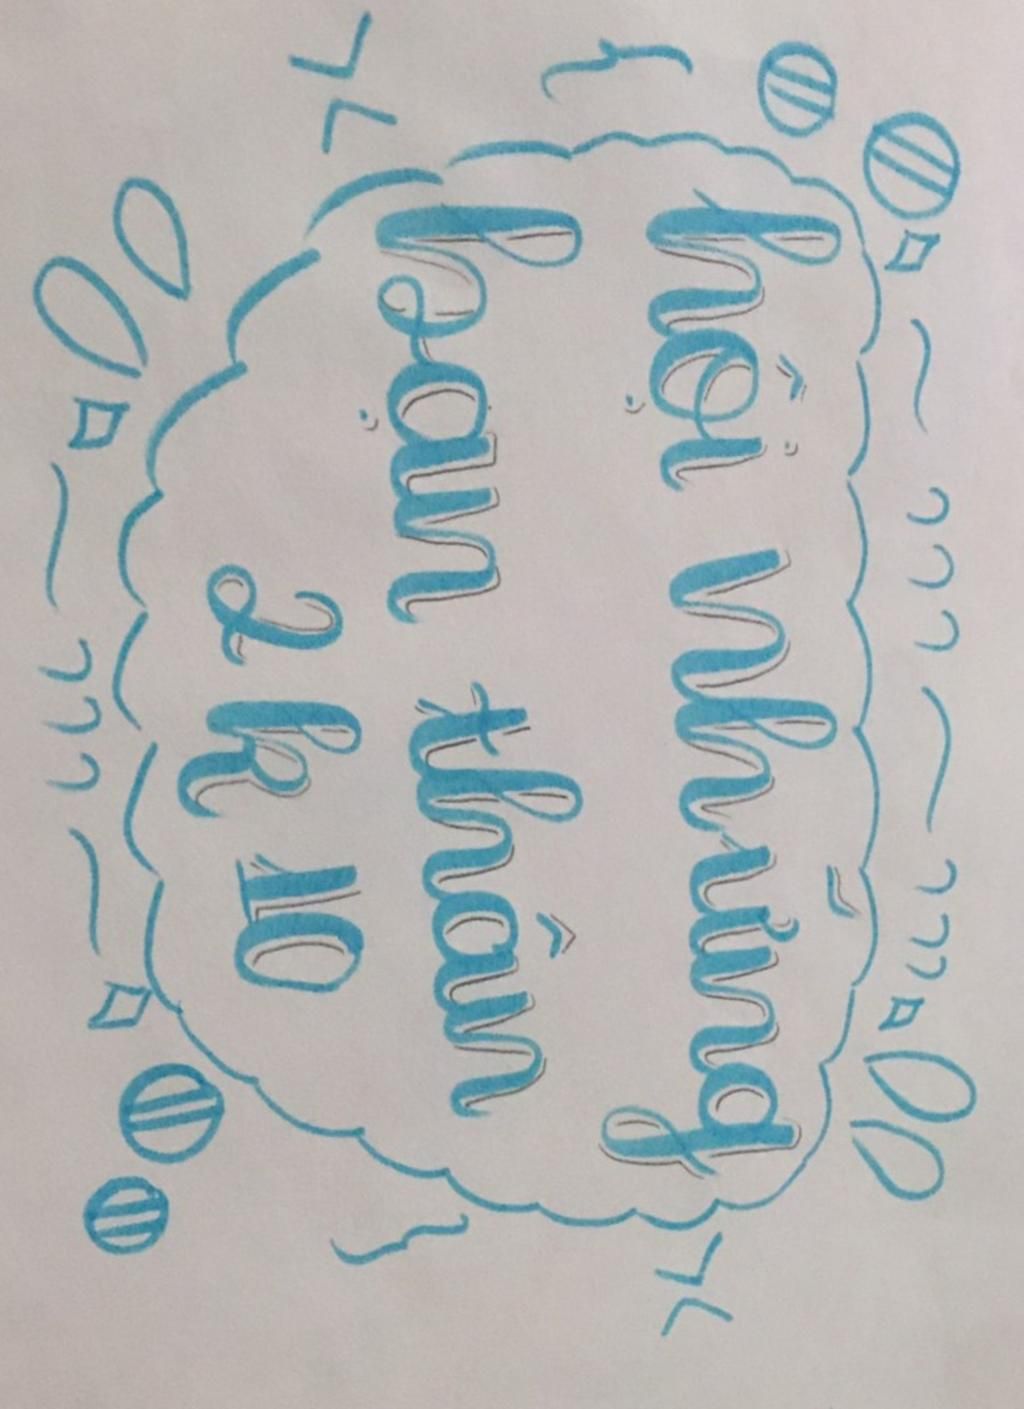 hội những
bạn thân
2k10